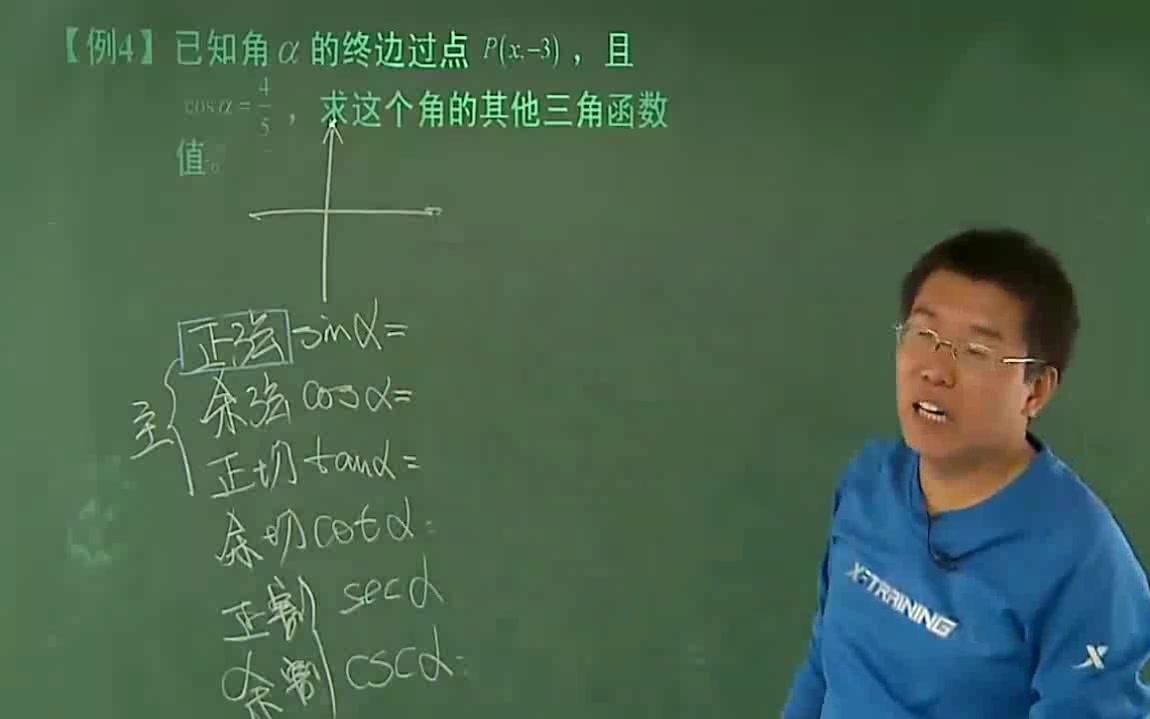 【例4】已知角α的终边过点 P(x,-3)，且
cosα=4/5，求这个角的其他三角函数
值。
正弦 sinα=
余弦 cosα=
主
正切 tanα=
余切 cotα=
正割 secα
余割 cscα=
X-TRAINING
X